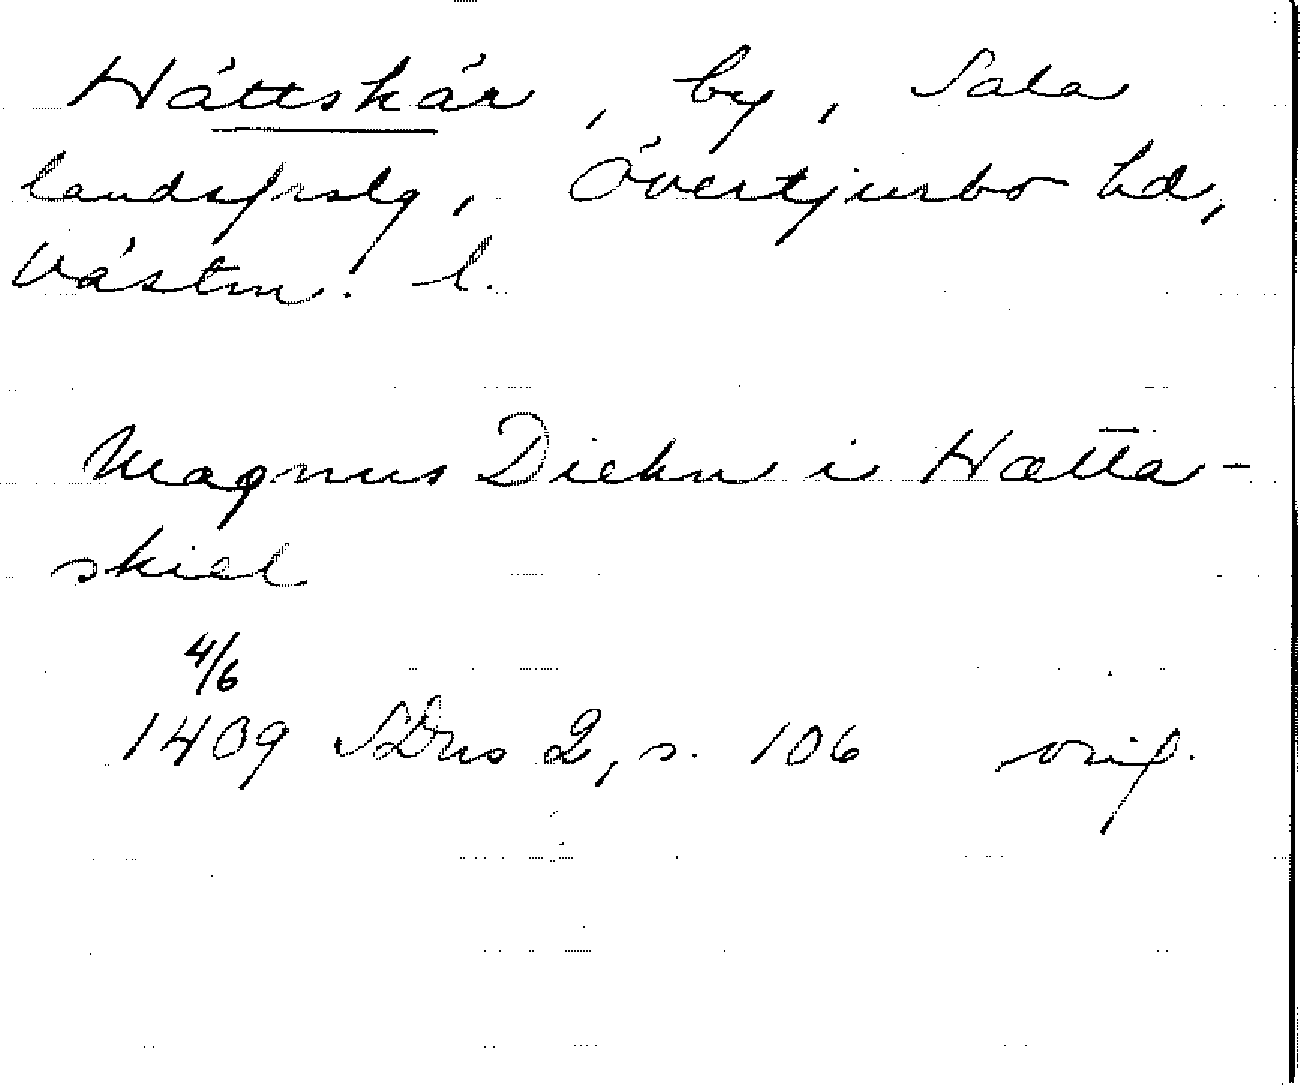 Hättskär, by, Sala
landsfrslg, Övertjurbo hd,
Västm. l.
Magnus Diekn i Hætta-
skiel
4/6
1409 SDns 2, s. 106 orig.